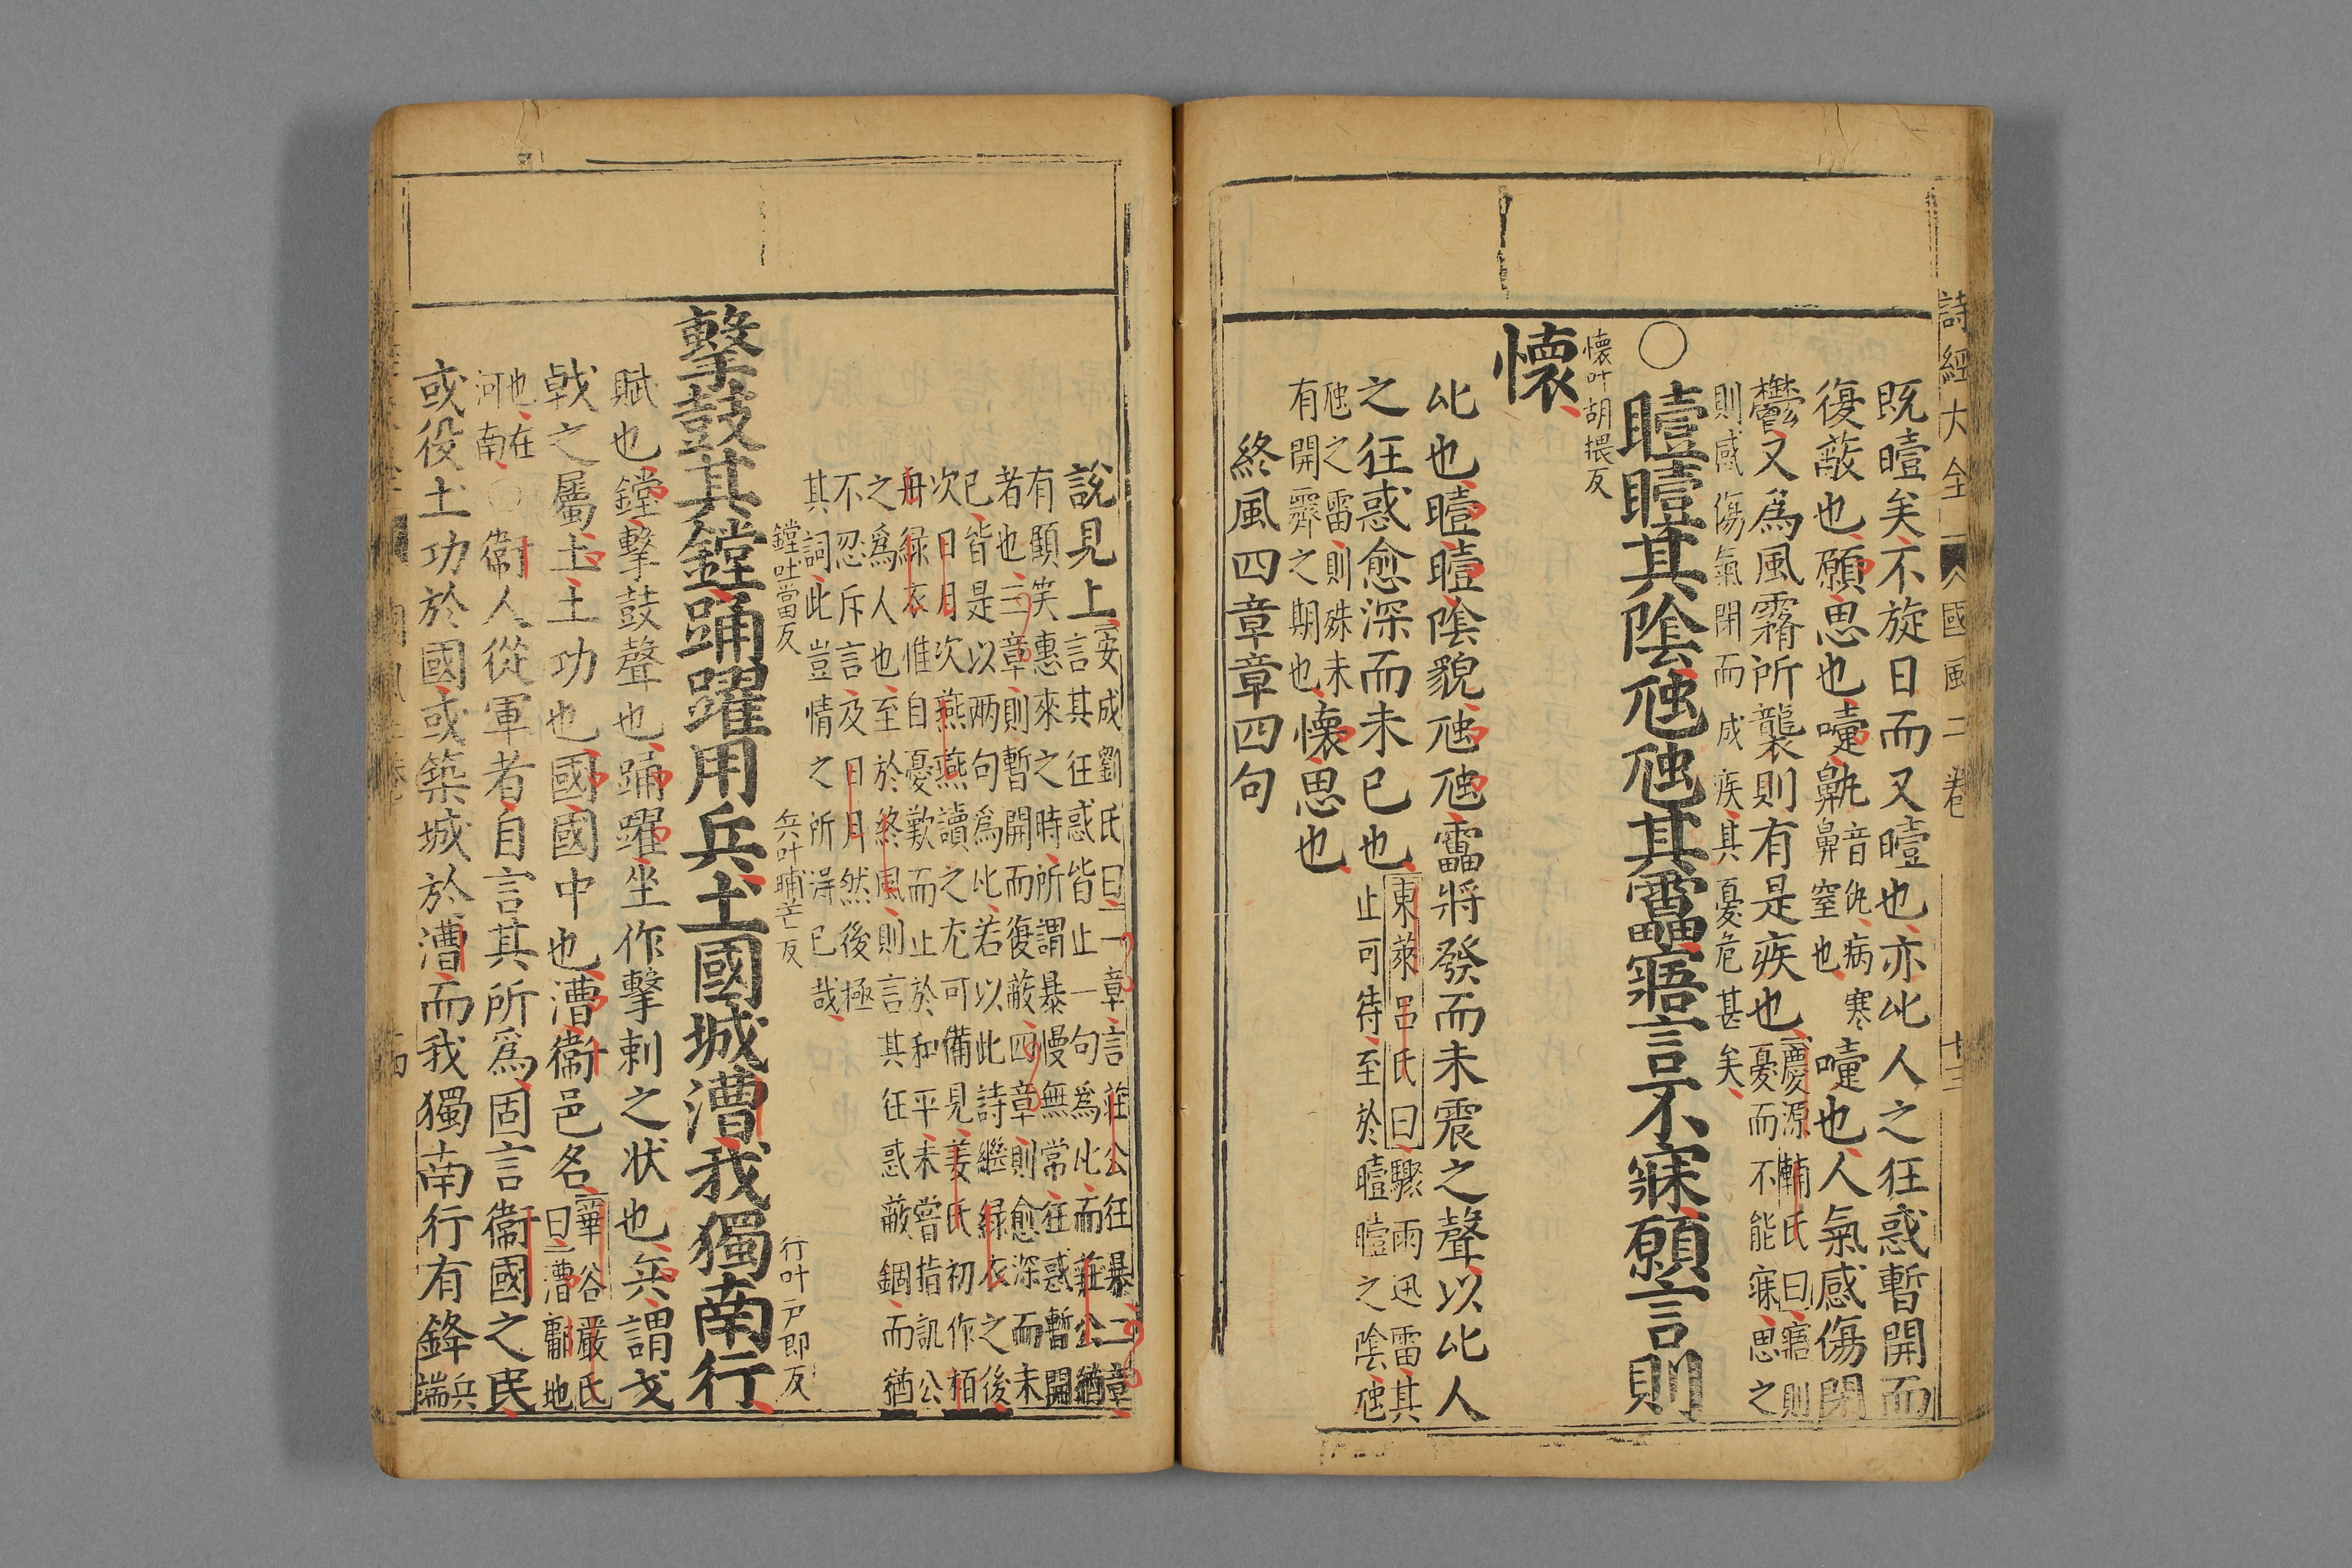 詩經大全 國風二卷 十三
既曀矣不旋日而又曀也亦比人之狂惑暫開而
復蔽也願思也嚏鼽嚏也人氣感傷閉
音仇病寒
鼻窒也
鬱又爲風霧所襲則有是疾也
慶源輔氏曰寤則
憂而不能寐思之
則感傷氣閉而成疾其憂危甚矣
○曀曀其陰虺虺其靁寤言不寐願言則
懷叶胡猥反
懷
比也曀曀陰貌虺虺靁將發而未震之聲以比人
之狂惑愈深而未已也
東萊呂氏曰驟雨迅雷其
止可待至於曀曀之陰虺
虺之雷則殊未
有開霽之期也
懷思也
終風四章章四句
說見上
安成劉氏曰一章言莊公狂暴二章
言其狂惑皆止一句爲比而莊公猶
有顧笑惠來之時所謂暴慢無常狂惑暫開
者也三章則暫開而復蔽四章則愈深而未
已皆是以兩句爲比若以此詩繼綠衣之後
次日月次燕燕讀之尤可備見姜氏初作栢
舟綠衣惟自憂歎而止於和平未嘗指訊公
之爲人也至於終風則言其狂惑蔽錮而猶
不忍斥言及日月然後極
其詞此豈情之所得已哉
鏜吐當反 兵叶晡芒反 行叶戸郎反
擊鼓其鏜踊躍用兵土國城漕我獨南行
賦也鏜擊鼓聲也踊躍坐作擊刺之狀也兵謂戈
戟之屬土土功也國國中也漕衞邑名
華谷嚴氏
曰漕鄘地
也在
河南
○衞人從軍者自言其所爲固言衞國之民
或役土功於國或築城於漕而我獨南行有鋒
兵
端